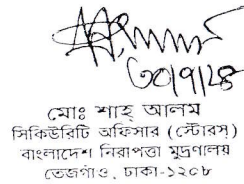 ৩০/৭/২৪
মোঃ শাহ্ আলম
সিকিউরিটি অফিসার (স্টোরস)
বাংলাদেশ নিরাপত্তা মুদ্রণালয়
তেজগাঁও, ঢাকা-১২০৮